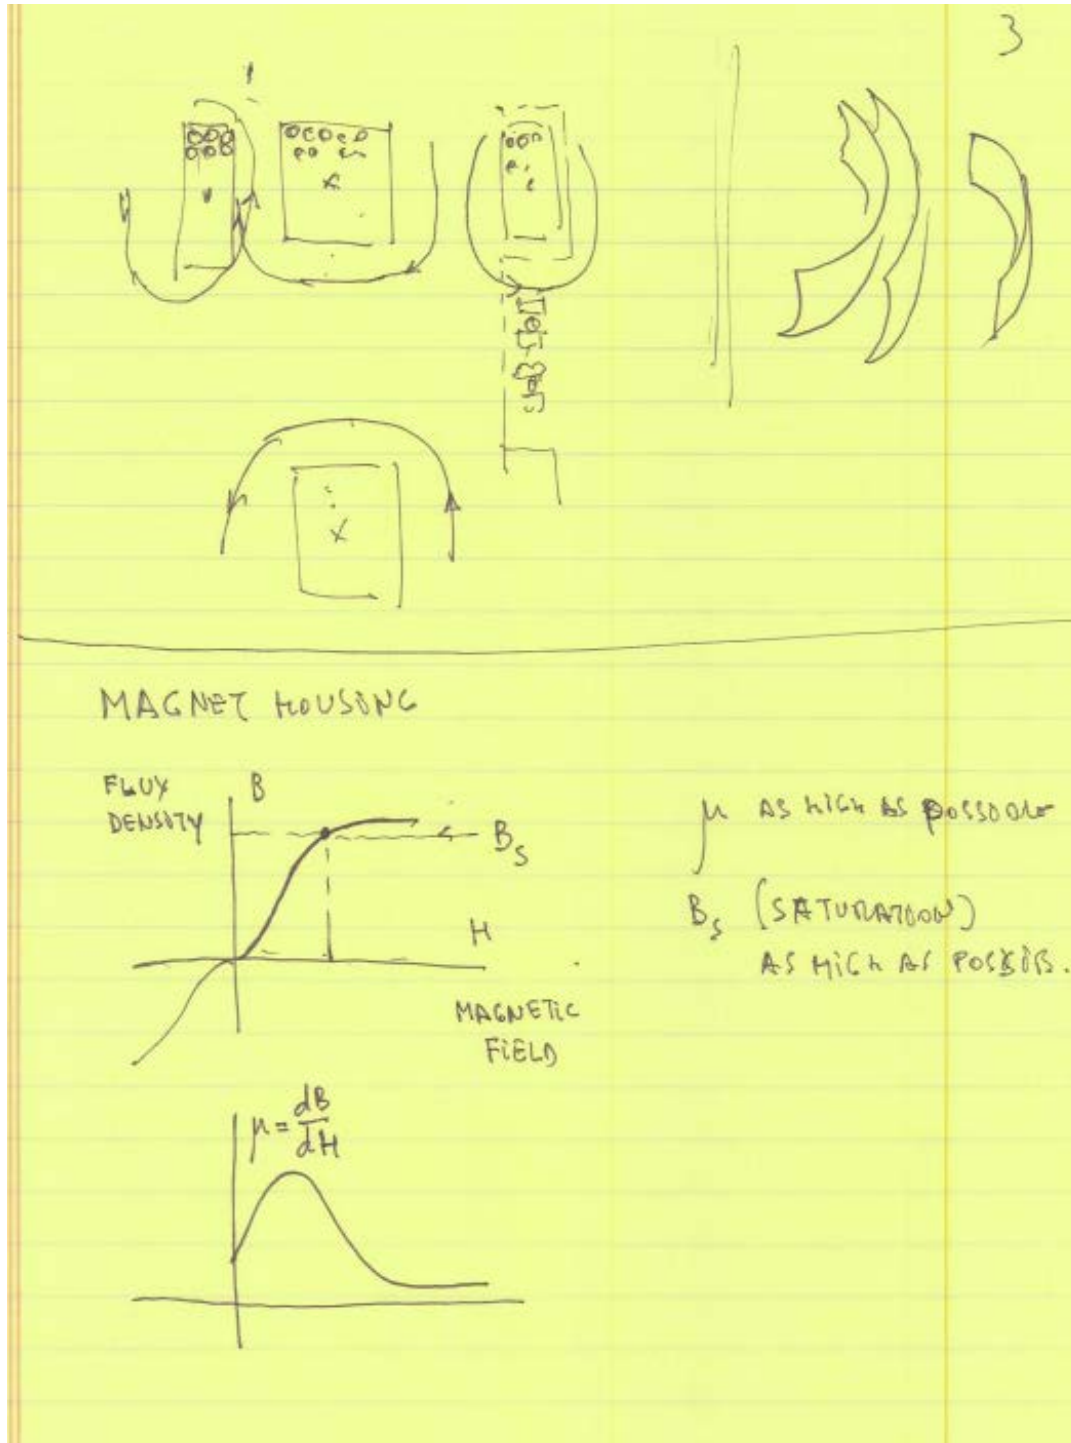 3
MAGNET HOUSING
FLUX
DENSITY
B
B_s
H
MAGNETIC
FIELD
μ AS HIGH AS POSSIBLE
B_s (SATURATION)
AS HIGH AS POSSIB.
μ = dB/dH